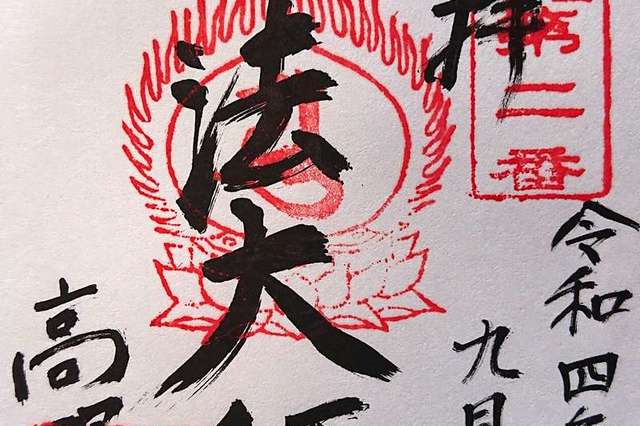 第二番
拝
令和四年
九月
法大
高